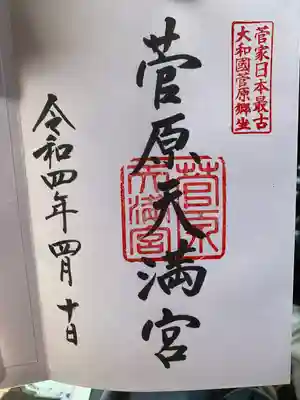 菅家日本最古
大和國菅原郷生
菅原天満宮
菅原
天満宮
令和四年四月十日